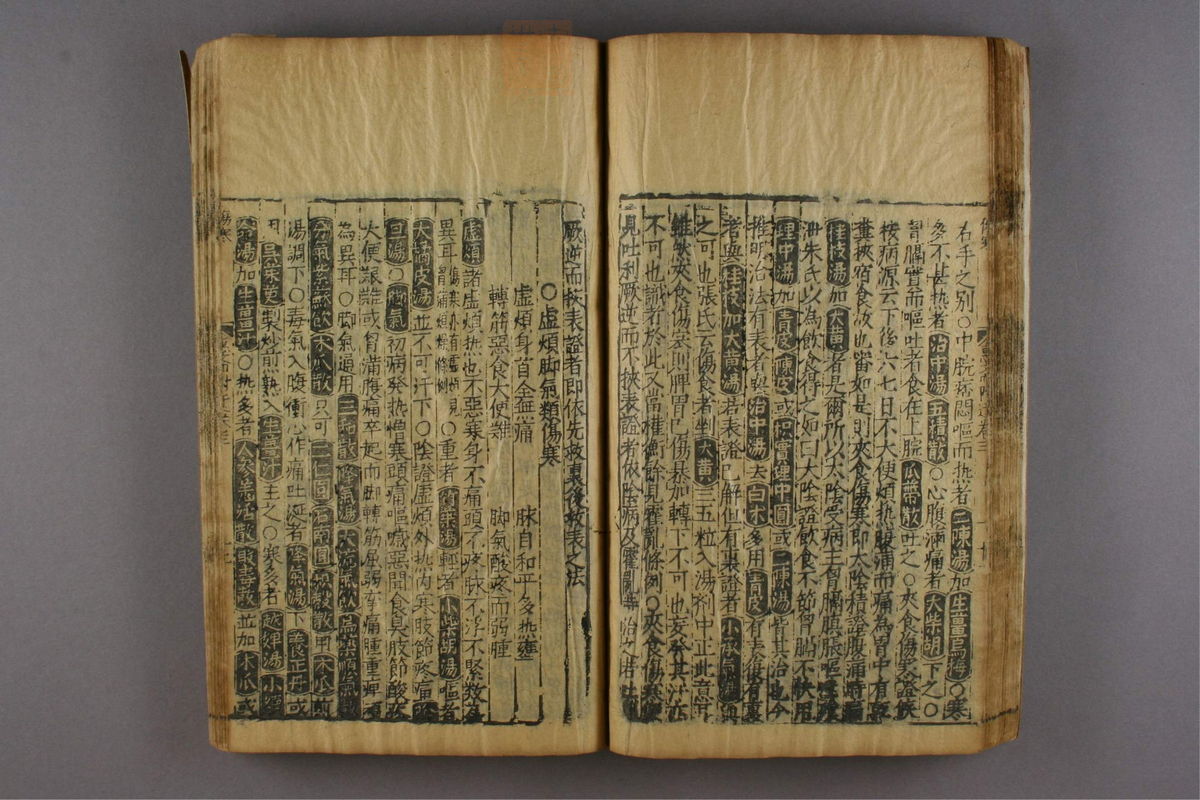 右手之別○中脘痞悶嘔而熱者二陳湯加生薑烏梅○寒
多不甚热者治中湯五積散○心腹滿痛者大柴胡下之○
胃膈實而嘔吐者食在上脘瓜蒂散吐之○夾食傷寒證候
按病源云下後六七日不大便煩热腹滿而痛為胃中有乾
糞挾宿食故也當如是則夾食傷寒即太陰積證腹痛時痛
桂枝湯加大黃者是爾所以太陰受病主胃膈䐜脹嘔吐
冲朱氏以為飲食得之如曰太陰證飲食不節胃膈不快用
理中湯加青皮陳皮或枳實理中圓或二陳湯皆其治也今
推明治法有表者與治中湯去白朮多用青皮有表復有裏
者與桂枝加大黃湯若表證已解但有裏證者小承氣湯與
之可也張氏云傷食者判大黃三五粒入湯劑中正此意耳
雖然夾食傷寒則脾胃已傷暴加轉下不可也妄發其汗亦
不可也識者於此又當權衡餘見霍亂條例○夾食傷寒
見吐利厥逆而不挾表證者依陰病及霍亂 治之若
厥逆而挾表證者即依先救裏後救表之法
○虛煩脚氣類傷寒
虛煩身首盡痛 脉自和平多热壅
轉筋惡食大便難 脚氣酸疼而弱腫
虛煩諸虛煩热也不惡寒身不痛頭不疼脉不浮不緊數為
異耳傷寒亦有虛煩見胃痛煩燥條例○重者竹葉湯輕者小柴胡湯嘔者
大橘皮湯並不可汗下○陰證虛煩外热内寒肢節疼痛
四湯○脚氣初病發热憎寒頭痛嘔噦惡聞食臭肢節酸疼
大便艱難或胃滿腹痛卒起而脚轉筋屈弱攣痛腫重煙頑
為異耳○脚氣通用三和散降氣湯大流氣飲烏藥順氣散
分氣紫蘇飲木瓜散只可二仁圓石南圓無殺散用木瓜煎
湯調下○毒氣入腹衝心作痛吐涎者降氣湯下養正丹或
用吳茱萸製炒煎熟入生薑汁主之○寒多者越婢湯小續
命湯加生薑汁○热多者人參羌活散敗毒散並加木瓜或